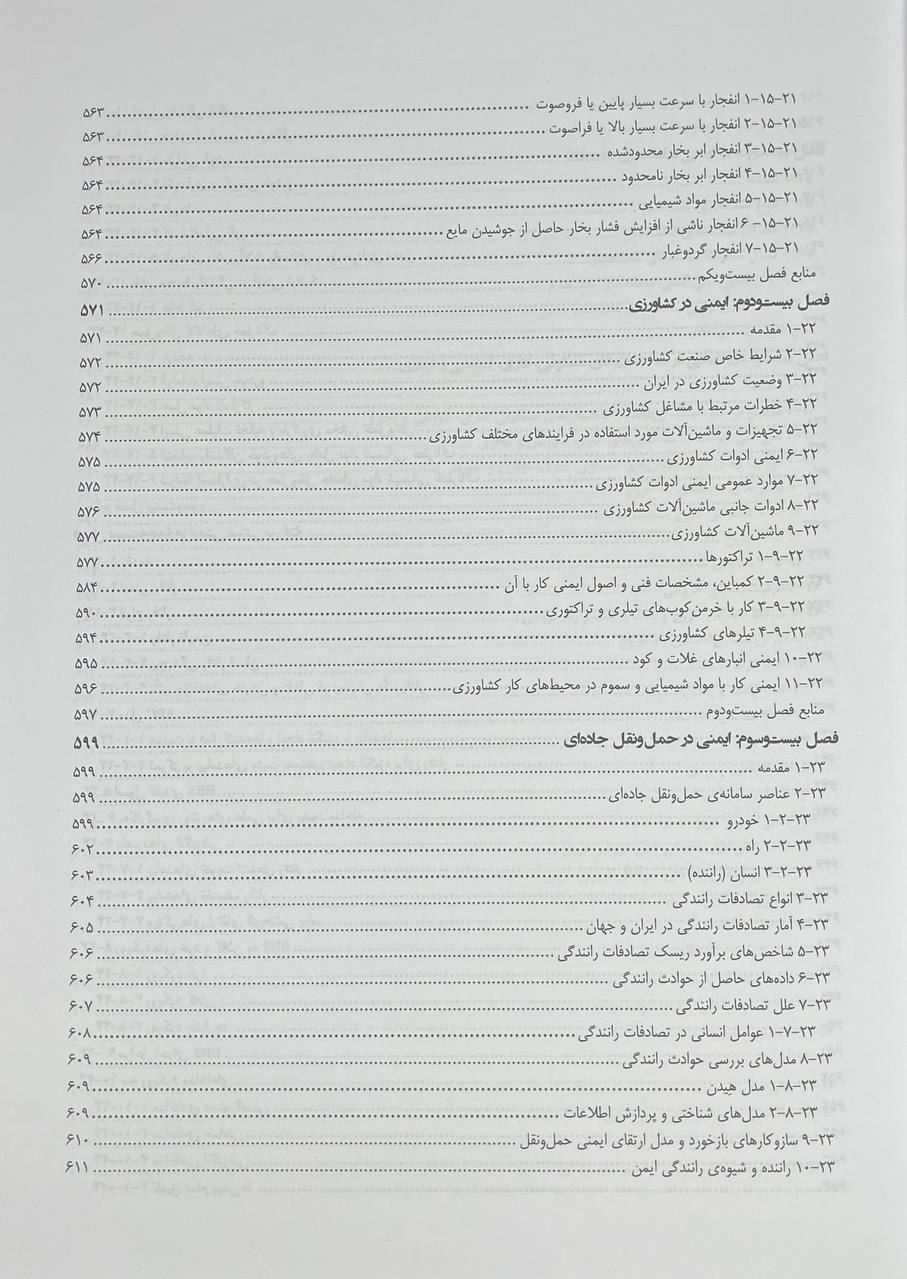 ۲۱-۱۵-۱ انفجار با سرعت بسیار پایین یا فروصوت ........ ۵۶۳
۲۱-۱۵-۲ انفجار با سرعت بسیار بالا یا فراصوت ........ ۵۶۳
۲۱-۱۵-۳ انفجار ابر بخار محدودشده ........ ۵۶۴
۲۱-۱۵-۴ انفجار ابر بخار نامحدود ........ ۵۶۴
۲۱-۱۵-۵ انفجار مواد شیمیایی ........ ۵۶۴
۲۱-۱۵-۶ انفجار ناشی از افزایش فشار بخار حاصل از جوشیدن مایع ........ ۵۶۴
۲۱-۱۵-۷ انفجار گردوغبار ........ ۵۶۶
منابع فصل بیست‌ویکم ........ ۵۷۰
فصل بیست‌ودوم: ایمنی در کشاورزی ........ ۵۷۱
۲۲-۱ مقدمه ........ ۵۷۱
۲۲-۲ شرایط خاص صنعت کشاورزی ........ ۵۷۲
۲۲-۳ وضعیت کشاورزی در ایران ........ ۵۷۲
۲۲-۴ خطرات مرتبط با مشاغل کشاورزی ........ ۵۷۳
۲۲-۵ تجهیزات و ماشین‌آلات مورد استفاده در فرایندهای مختلف کشاورزی ........ ۵۷۴
۲۲-۶ ایمنی ادوات کشاورزی ........ ۵۷۵
۲۲-۷ موارد عمومی ایمنی ادوات کشاورزی ........ ۵۷۵
۲۲-۸ ادوات جانبی ماشین‌آلات کشاورزی ........ ۵۷۶
۲۲-۹ ماشین‌آلات کشاورزی ........ ۵۷۷
۲۲-۹-۱ تراکتورها ........ ۵۷۷
۲۲-۹-۲ کمباین، مشخصات فنی و اصول ایمنی کار با آن ........ ۵۸۴
۲۲-۹-۳ کار با خرمن‌کوب‌های تیلری و تراکتوری ........ ۵۹۰
۲۲-۹-۴ تیلرهای کشاورزی ........ ۵۹۴
۲۲-۱۰ ایمنی انبارهای غلات و کود ........ ۵۹۵
۲۲-۱۱ ایمنی کار با مواد شیمیایی و سموم در محیط‌های کار کشاورزی ........ ۵۹۶
منابع فصل بیست‌ودوم ........ ۵۹۷
فصل بیست‌وسوم: ایمنی در حمل‌ونقل جاده‌ای ........ ۵۹۹
۲۳-۱ مقدمه ........ ۵۹۹
۲۳-۲ عناصر سامانه‌ی حمل‌ونقل جاده‌ای ........ ۵۹۹
۲۳-۲-۱ خودرو ........ ۵۹۹
۲۳-۲-۲ راه ........ ۶۰۲
۲۳-۲-۳ انسان (راننده) ........ ۶۰۳
۲۳-۳ انواع تصادفات رانندگی ........ ۶۰۴
۲۳-۴ آمار تصادفات رانندگی در ایران و جهان ........ ۶۰۵
۲۳-۵ شاخص‌های برآورد ریسک تصادفات رانندگی ........ ۶۰۶
۲۳-۶ داده‌های حاصل از حوادث رانندگی ........ ۶۰۶
۲۳-۷ علل تصادفات رانندگی ........ ۶۰۷
۲۳-۷-۱ عوامل انسانی در تصادفات رانندگی ........ ۶۰۸
۲۳-۸ مدل‌های بررسی حوادث رانندگی ........ ۶۰۹
۲۳-۸-۱ مدل هِیدن ........ ۶۰۹
۲۳-۸-۲ مدل‌های شناختی و پردازش اطلاعات ........ ۶۰۹
۲۳-۹ سازوکارهای بازخورد و مدل ارتقای ایمنی حمل‌ونقل ........ ۶۱۰
۲۳-۱۰ راننده و شیوه‌ی رانندگی ایمن ........ ۶۱۱